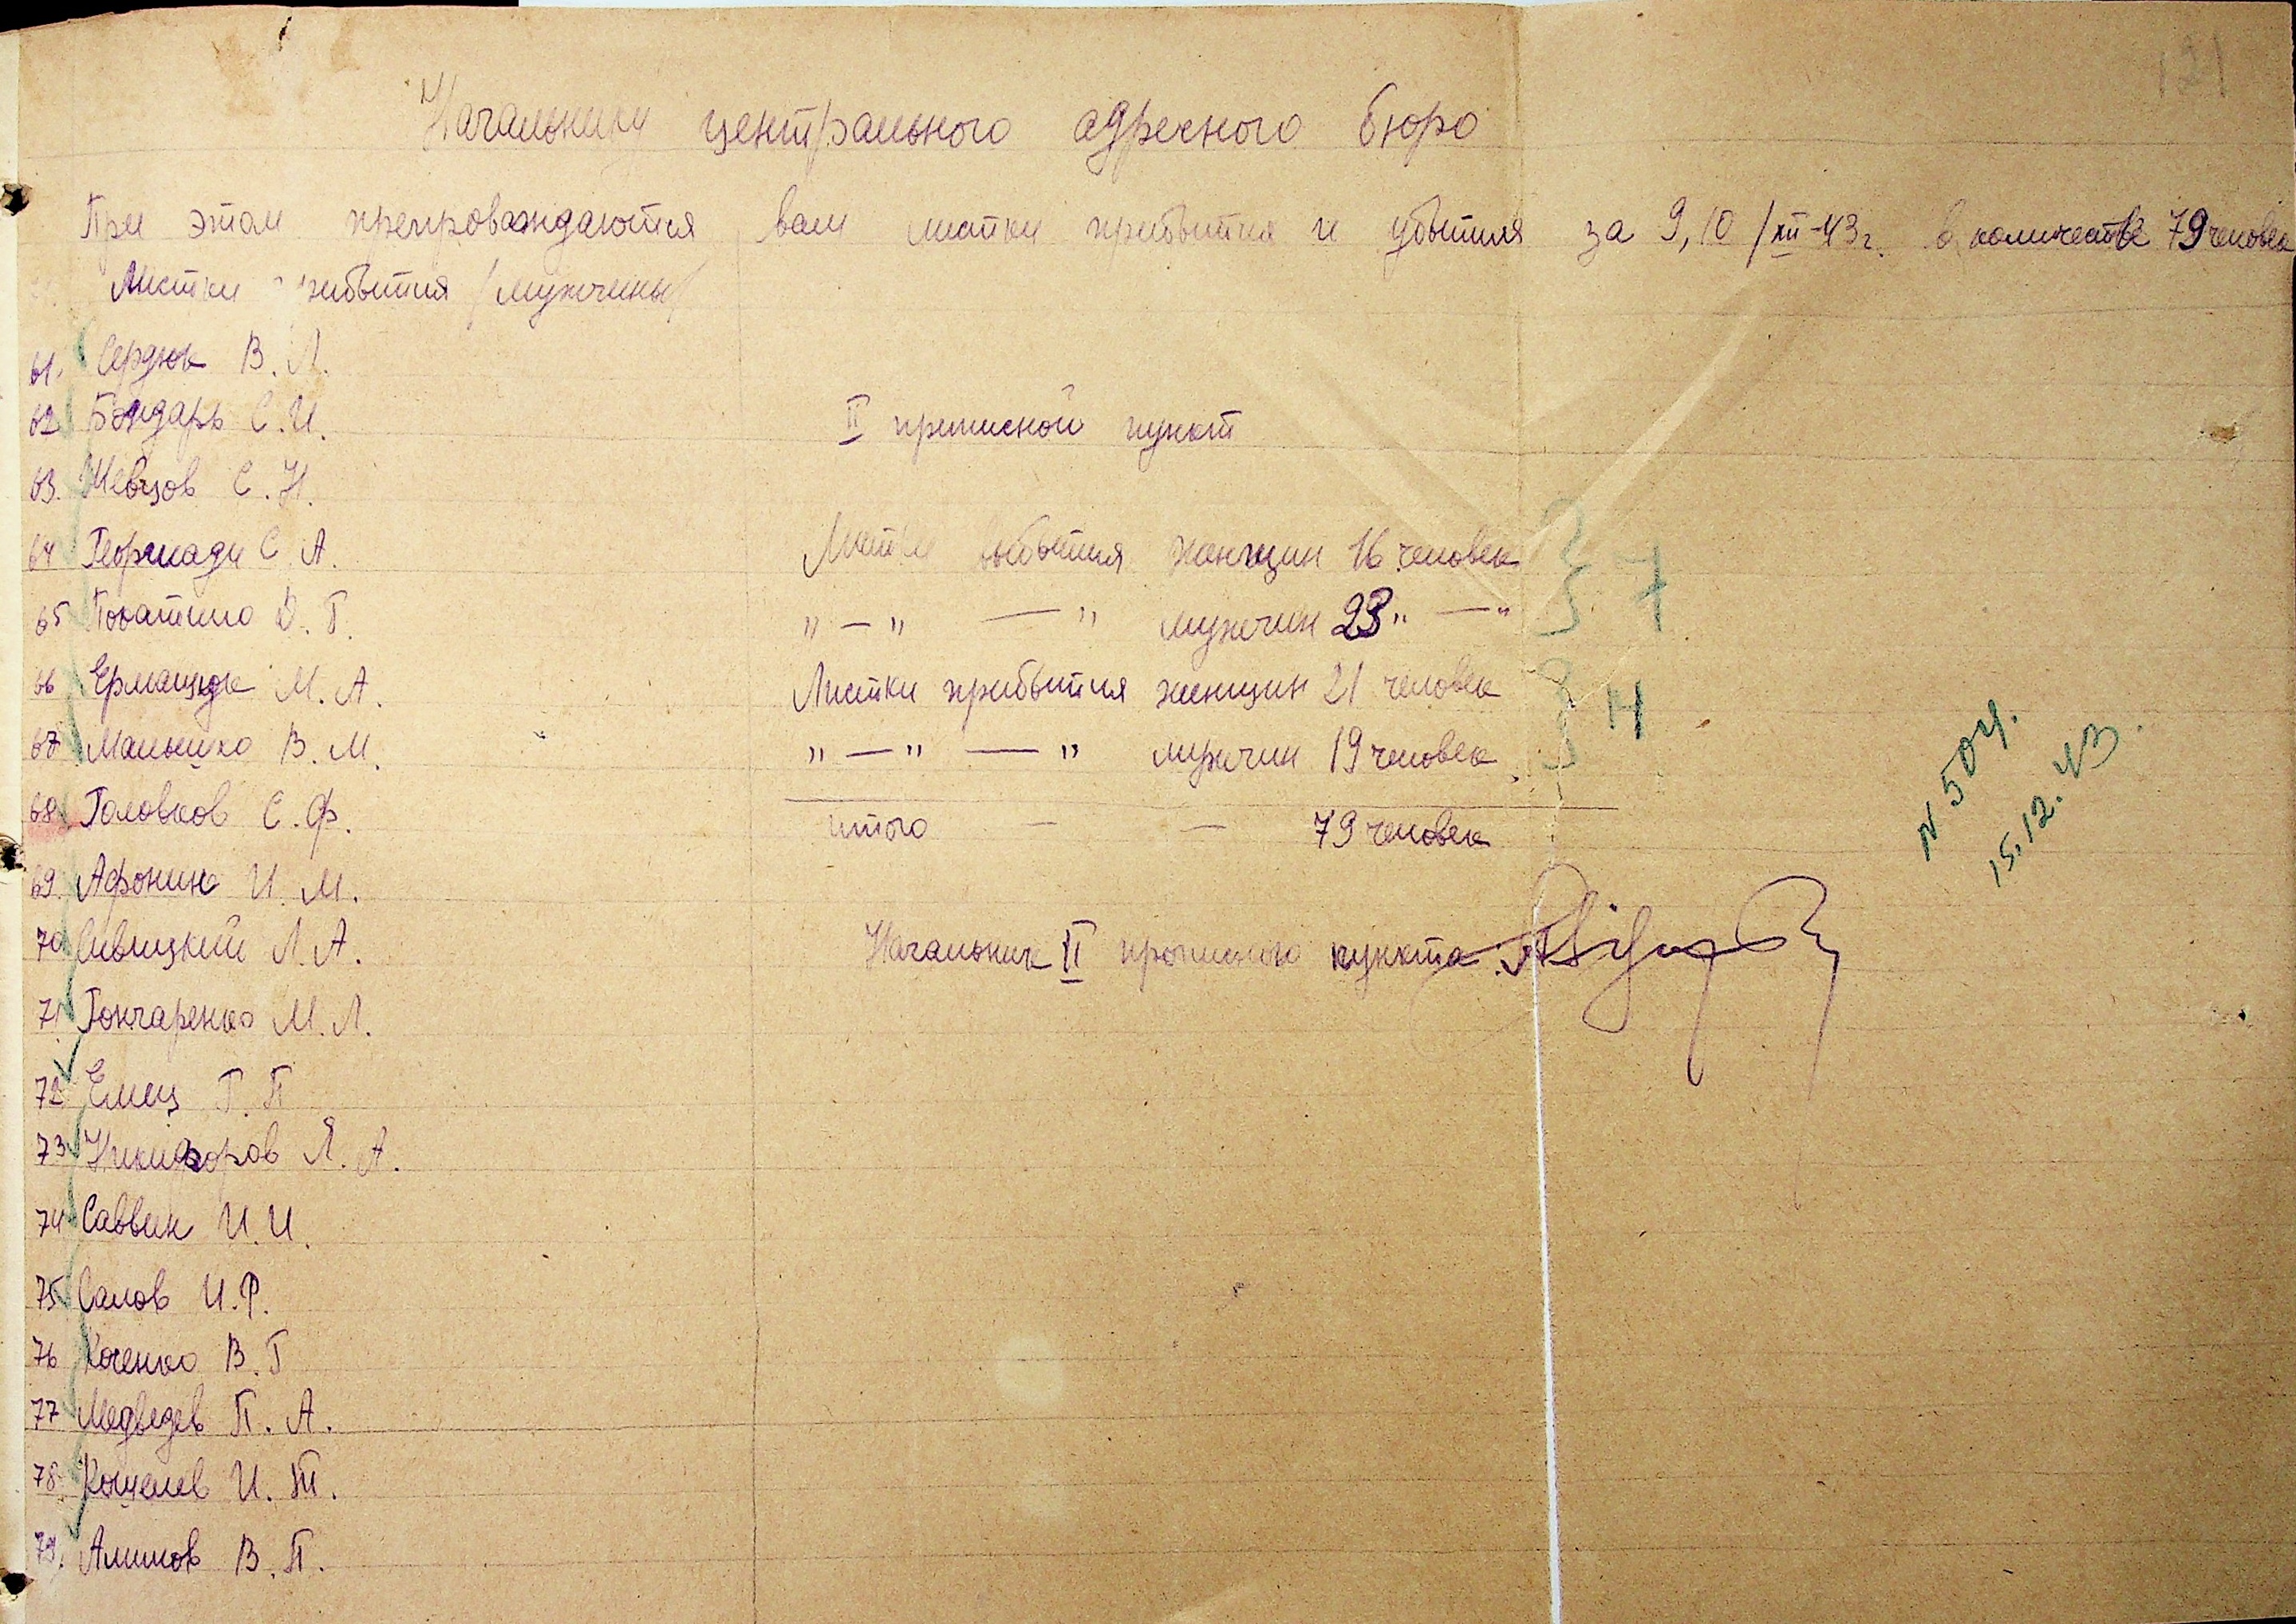 121
Начальнику центрального адресного бюро
При этом препровождаются вам листки прибытия и убытия за 9, 10 /XII-43 г. в количестве 79 человек
Листки прибытия /мужчины/
61. Сердюк В. Л.
62 Бондарь С. И.
63. Шевцов С. Н.
64 Георгиади С. А.
65 Г.
66 Ермащук М. А.
67 Малышко В. М.
68. Головков С. Ф.
69. Афонин И. М.
70 Савицкий Л. А.
71 Гончаренко М. Л.
72 Емец Г. П
73 Никифоров Я. А.
74 Саввин И. И.
75 Салов И. Ф.
76 Коченко В. Г
77 Медведев П. А.
78. Кошелев И. Т.
79. Алимов В. П.
II прописной пункт
Листки выбытия женщин 16 человек
" — " — " мужчин 23 " — "
} 7
Листки прибытия женщин 21 человек
" — " — " мужчин 19 человек
} 14
итого — — 79 человек
Начальник II прописного пункта
N 504.
15.12.43.